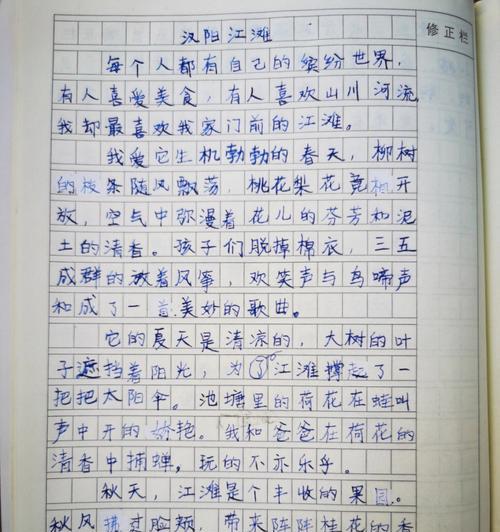 修正栏
汉阳江滩
每个人都有自己的缤纷世界，
有人喜爱美食，有人喜欢山川河流，
我却最喜欢我家门前的江滩。
我爱它生机勃勃的春天，柳树
的枝条随风飘荡，桃花梨花竞相开
放，空气中弥漫着花儿的芬芳和泥
土的清香。孩子们脱掉棉衣，三五
成群的放着风筝，欢笑声与鸟啼声
和成了一首美妙的歌曲。
它的夏天是清凉的，大树的叶
子遮挡着阳光，为江滩撑起了一
把把太阳伞。池塘里的荷花在蛙叫
声中开的娇艳。我和爸爸在荷花的
清香中捕蝉，玩的不亦乐乎。
秋天，江滩是个丰收的果园。
秋风拂过脸颊，带来阵阵桂花的香